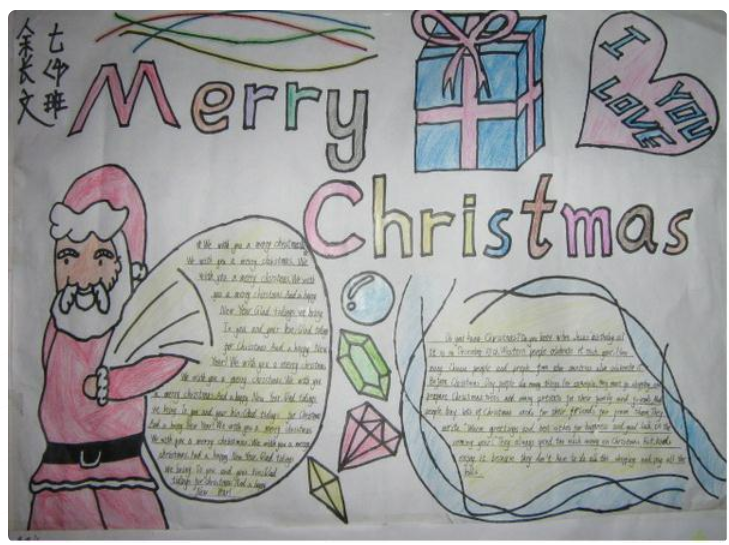 七(4)班
余长文
Merry
Christmas
I
LOVE
YOU
We wish you a merry christmas
We wish you a merry christmas. We
wish you a merry christmas. We wish
you a merry christmas And a happy
New Year. Glad tidings we bring
To you and your kin. Glad tidings
for Christmas And a happy New
Year! We wish you a merry christmas
We wish you a merry christmas. We wish you
a merry christmas And a happy New Year. Glad tidings
we bring To you and your kin. Glad tidings for Christmas
And a happy New Year! We wish you a merry christmas
We wish you a merry christmas. We wish you a merry
christmas And a happy New Year. Glad tidings
we bring To you and your kin. Glad
tidings for Christmas And a happy
New Year!
Do you know Christmas? Do you know when Jesus' birthday is?
It is on December 25th. Western people celebrate it each year. Now
many Chinese people and people from other countries also celebrate it.
Before Christmas Day, people do many things. For example, they must go shopping and
prepare Christmas trees and many presents for their family and friends. And
people buy lots of Christmas cards for their friends, too.
write "Warm greetings and best wishes for happiness and good luck in the
coming year". They always spend too much money on Christmas. But
because they don't have to do all the shopping and pay all the
bills.